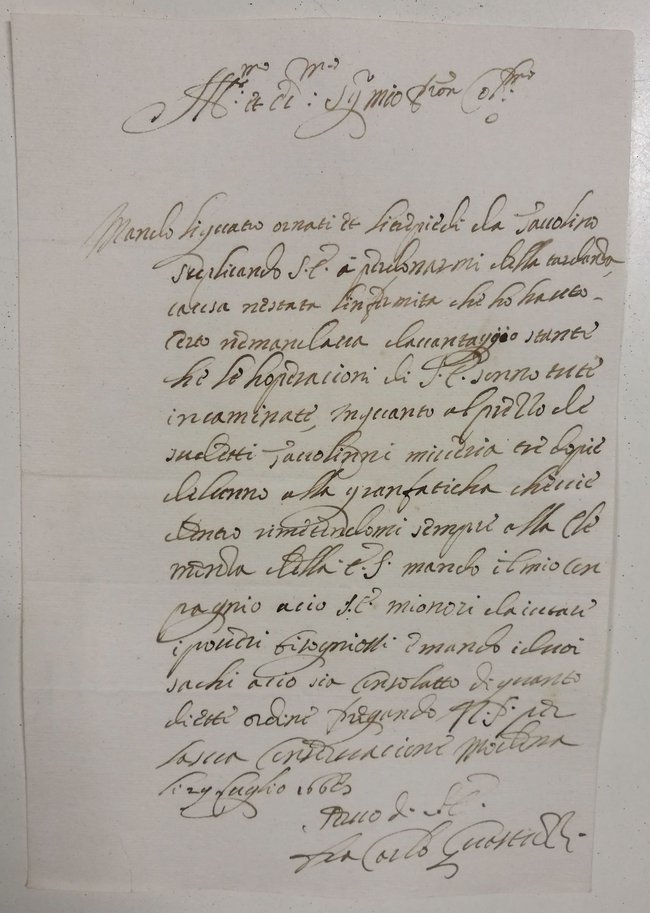 Ill.mo et Ecc.mo Sig.r mio Pron Col.mo
Mando li quatro ornati et li tre piedi da Tavolino
suplicando S. E. a perdonarmi della tardanza,
causa n'è stata l'infermita che ho hauto
certo ne mandava davantaggio stante
che le hoperacioni di S. E. sonno tute
incaminate, in quanto al prezzo de
sudetti Tavolinni mi tre dopie
de l'unno alla gran faticha che vi è
dentro rimetendomi sempre alla cle
menza della E. S. mando il mio con
pagnio acio S. E. mi onori da iutare
i poveri bisogniossi e mando i duoi
sachi acio sia consolatto di quanto
diette ordine pregando N. S. per
la sua conservacione Modena
li 29 Luglio
Servo di S. E.
fra Carlo